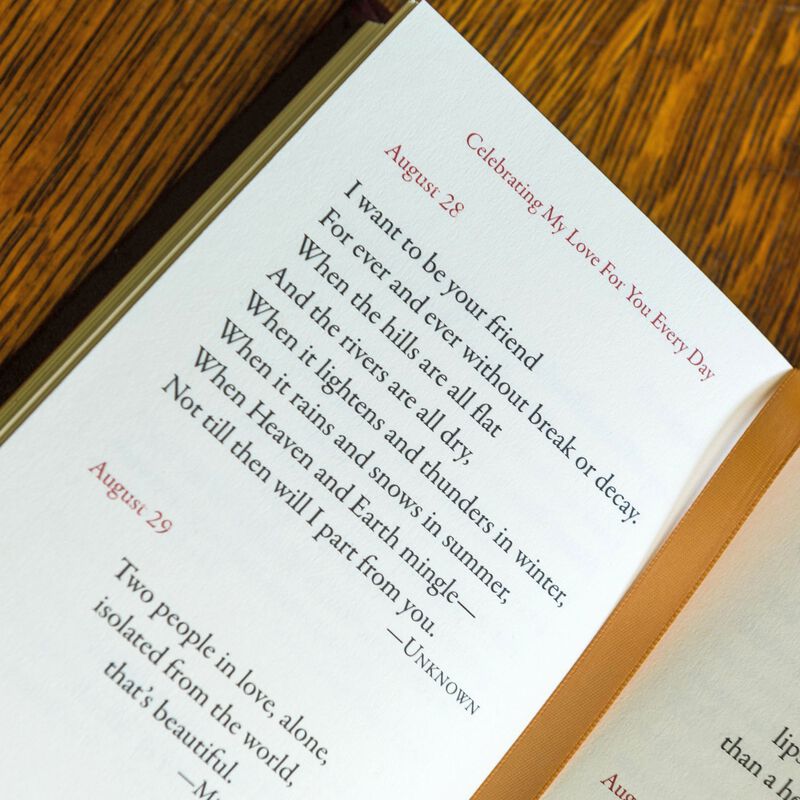 Celebrating My Love For You Every Day
August 28
I want to be your friend
For ever and ever without break or decay.
When the hills are all flat
And the rivers are all dry,
When it lightens and thunders in winter,
When it rains and snows in summer,
When Heaven and Earth mingle—
Not till then will I part from you.
—Unknown
August 29
Two people in love, alone,
isolated from the world,
that's beautiful.
lips
than a